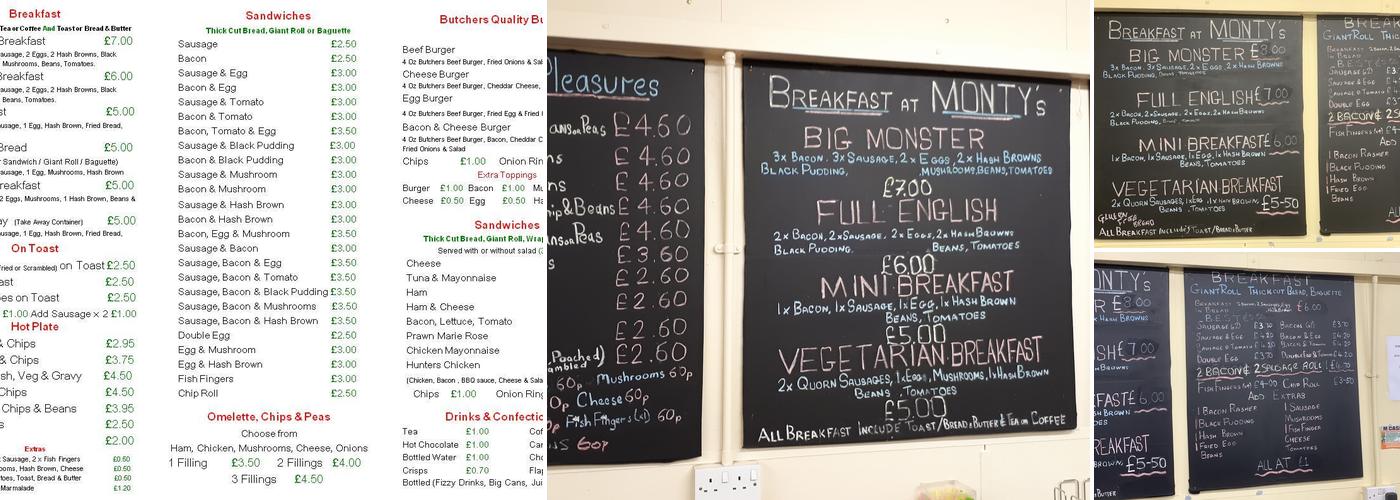 Breakfast
Tea or Coffee And Toast or Bread & Butter
Breakfast £7.00
ausage, 2 Eggs, 2 Hash Browns, Black
Mushrooms, Beans, Tomatoes.
Breakfast £6.00
ausage, 2 Eggs, 2 Hash Browns, Black
Beans, Tomatoes.
st £5.00
usage, 1 Egg, Hash Brown, Fried Bread,
Bread £5.00
r Sandwich / Giant Roll / Baguette)
reakfast £5.00
2 Eggs, Mushrooms, 1 Hash Browns, Beans &
ay (Take Away Container) £5.00
usage, 1 Egg, Hash Brown, Fried Bread,
On Toast
Fried or Scrambled) on Toast £2.50
ast £2.50
oes on Toast £2.50
£1.00 Add Sausage x 2 £1.00
Hot Plate
& Chips £2.95
& Chips £3.75
sh, Veg & Gravy £4.50
Chips £4.50
Chips & Beans £3.95
s £2.50
£2.00
Extras
x Sausage, 2 x Fish Fingers £0.60
ooms, Hash Brown, Cheese £0.60
atoes, Toast, Bread & Butter £0.60
Marmalade £1.20
Sandwiches
Thick Cut Bread, Giant Roll or Baguette
Sausage £2.50
Bacon £2.50
Sausage & Egg £3.00
Bacon & Egg £3.00
Sausage & Tomato £3.00
Bacon & Tomato £3.00
Bacon, Tomato & Egg £3.50
Sausage & Black Pudding £3.00
Bacon & Black Pudding £3.00
Sausage & Mushroom £3.00
Bacon & Mushroom £3.00
Sausage & Hash Brown £3.00
Bacon & Hash Brown £3.00
Bacon, Egg & Mushroom £3.50
Sausage & Bacon £3.00
Sausage, Bacon & Egg £3.50
Sausage, Bacon & Tomato £3.50
Sausage, Bacon & Black Pudding £3.50
Sausage, Bacon & Mushrooms £3.50
Sausage, Bacon & Hash Brown £3.50
Double Egg £2.50
Egg & Mushroom £3.00
Egg & Hash Brown £3.00
Fish Fingers £3.00
Chip Roll £2.50
Omelette, Chips & Peas
Choose from
Ham, Chicken, Mushrooms, Cheese, Onions
1 Filling £3.50 2 Fillings £4.00
3 Fillings £4.50
Butchers Quality Bu
Beef Burger
4 Oz Butchers Beef Burger, Fried Onions & Sal
Cheese Burger
4 Oz Butchers Beef Burger, Cheddar Cheese,
Egg Burger
4 Oz Butchers Beef Burger, Fried Egg & Fried
Bacon & Cheese Burger
4 Oz Butchers Beef Burger, Bacon, Cheddar C
Fried Onions & Salad
Chips £1.00 Onion Rin
Extra Toppings
Burger £1.00 Bacon £1.00 Mu
Cheese £0.50 Egg £0.50 Ha
Sandwiches
Thick Cut Bread, Giant Roll, Wrap
Served with or without salad (
Cheese
Tuna & Mayonnaise
Ham
Ham & Cheese
Bacon, Lettuce, Tomato
Prawn Marie Rose
Chicken Mayonnaise
Hunters Chicken
(Chicken, Bacon , BBQ sauce, Cheese & Sala
Chips £1.00 Onion Ring
Drinks & Confectio
Tea £1.00 Cof
Hot Chocolate £1.00 Can
Bottled Water £1.00 Cho
Crisps £0.70 Flap
Bottled (Fizzy Drinks, Big Cans, Jui
Pleasures
ans or Peas £4.60
ns £4.60
ns £4.60
hip & Beans £4.60
ans or Peas £4.60
s £3.60
£2.60
£2.60
£2.60
Poached) £2.60
ambled)
60p Mushrooms 60p
60p Cheese 60p
60p Fish Fingers (x1) 60p
ss 60p
BREAKFAST AT MONTY'S
BIG MONSTER
3x BACON, 3x SAUSAGE, 2x EGGS, 2x HASH BROWNS
BLACK PUDDING, MUSHROOMS, BEANS, TOMATOES
£7.00
FULL ENGLISH
2x BACON, 2x SAUSAGE, 2x EGGS, 2x HASH BROWNS
BLACK PUDDING. BEANS, TOMATOES
£6.00
MINI BREAKFAST
1x BACON, 1x SAUSAGE, 1x EGG, 1x HASH BROWN
BEANS, TOMATOES
£5.00
VEGETARIAN BREAKFAST
2x QUORN SAUSAGES, 1x EGG, MUSHROOMS, 1x HASH BROWN
BEANS, TOMATOES
£5.00
ALL BREAKFAST INCLUDE TOAST/BREAD & BUTTER & TEA OR COFFEE
BREAKFAST AT MONTY'S
BIG MONSTER £8.00
3x BACON, 3x SAUSAGE, 2x EGGS, 2x HASH BROWNS
BLACK PUDDING, BEANS, TOMATOES
FULL ENGLISH £7.00
2x BACON, 2x SAUSAGE, 2x EGGS, 2x HASH BROWNS
BLACK PUDDING,
MINI BREAKFAST £6.00
1x BACON, 1x SAUSAGE, 1x EGG, 1x HASH BROWN
BEANS, TOMATOES
VEGETARIAN BREAKFAST
2x QUORN SAUSAGES, 1x EGG, 1x HASH BROWN
BEANS, TOMATOES £5-50
GLUTEN FREE BREAD
ALL BREAKFAST INCLUDES TOAST/BREAD & BUTTER
BREAK
GIANT ROLL THICK
BREAKFAST
IN BREAD
SAUSAGE (2) £3
SAUSAGE & EGG
SAUSAGE & TOMATO £4
DOUBLE EGG
2 BACON & 2 S
FISH FINGERS (4)
ADD
1 BACON RASHER
1 BLACK PUDDING
1 HASH BROWN
1 FRIED EGG
BEANS
ONTY'S
R £8.00
ISH £7.00
FAST £6.00
REAKFAST
£5-50
BREAKFAST
GIANT ROLL THICK CUT BREAD, BAGUETTE
BREAKFAST
IN BREAD £6.00
SAUSAGE (2) £3.70 BACON (2) £3.70
SAUSAGE & EGG £4.20 BACON & EGG £4.20
SAUSAGE & TOMATO £4.20 BACON & TOMATO £4.20
DOUBLE EGG £3.70 DOUBLE EGG & TOMATO £4.20
2 BACON & 2 SAUSAGE ROLL
FISH FINGERS (4) £4-00 CHIP ROLL £3-50
ADD EXTRAS
1 BACON RASHER 1 SAUSAGE
1 BLACK PUDDING MUSHROOMS
1 HASH BROWN 1 FISH FINGER
1 FRIED EGG CHEESE
BEANS TOMATOES
ALL AT £1